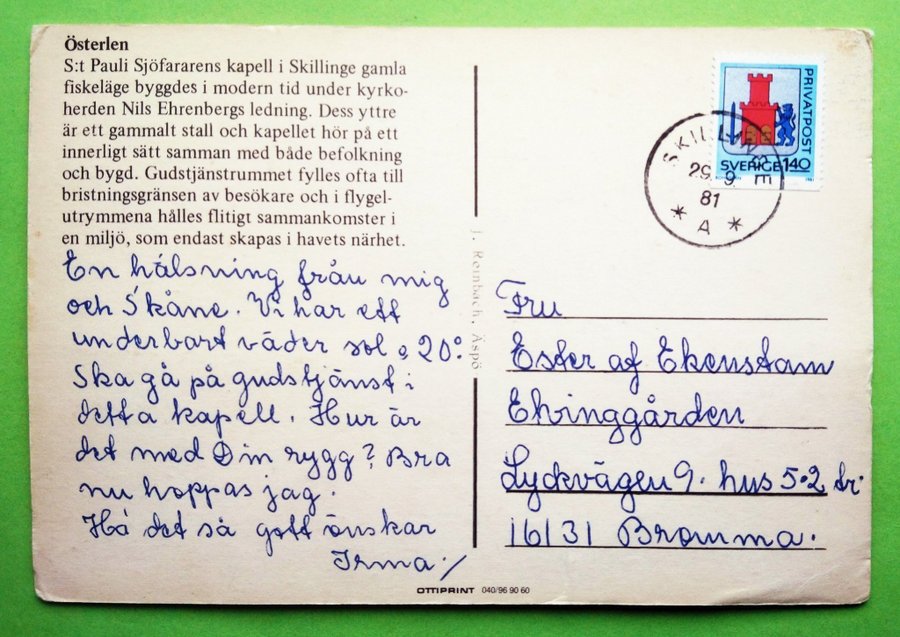 Österlen
S:t Pauli Sjöfararens kapell i Skillinge gamla
fiskeläge byggdes i modern tid under kyrko-
herden Nils Ehrenbergs ledning. Dess yttre
är ett gammalt stall och kapellet hör på ett
innerligt sätt samman med både befolkning
och bygd. Gudstjänstrummet fylles ofta till
bristningsgränsen av besökare och i flygel-
utrymmena hålles flitigt sammankomster i
en miljö, som endast skapas i havets närhet.
En hälsning från mig
och Skåne. Vi har ett
underbart väder sol o 20°.
Ska gå på gudstjänst i
detta kapell. Hur är
det med Din rygg? Bra
nu hoppas jag.
Ha det så gott önskar
Irma
J. Reinbach, Äspö
PRIVATPOST
SVERIGE 140
SKILLINGE
29. 9
81
* A *
Fru
Ester af Ekenstam
Elvinggården
Lyckvägen 9. hus 5. 2 tr
16131 Bromma.
OTTIPRINT 040/96 90 60